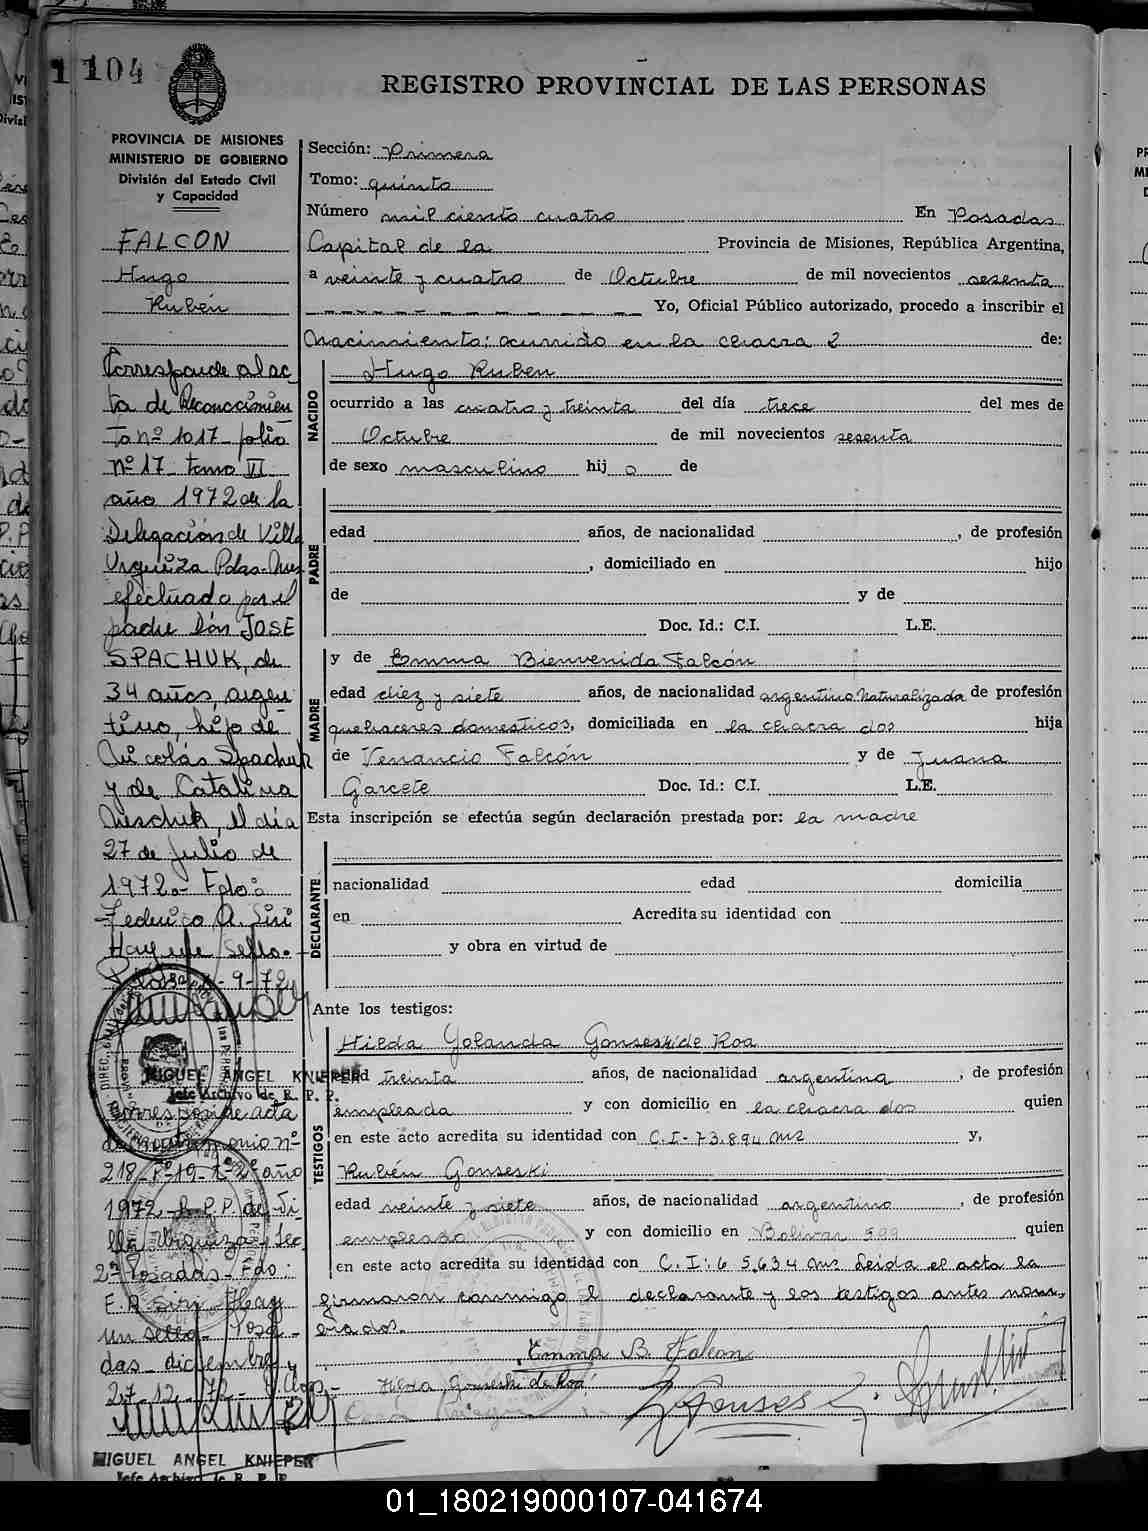 1104
REGISTRO PROVINCIAL DE LAS PERSONAS
PROVINCIA DE MISIONES
MINISTERIO DE GOBIERNO
División del Estado Civil
y Capacidad
FALCON
Hugo
Rubén
Corresponde al ac-
ta de Reconocimien
to nº 1017 folio
nº 17 tomo VI
año 1972 de la
Delegación de Villa
Urquiza Pdas. Mnes
efectuado por el
padre don JOSE
SPACHUK, de
34 años, argen-
tino, hijo de
Nicolás Spachuk
y de Catalina
el día
27 de Julio de
1972. Fdo:
Federico A. Siri
Hay un sello.
9-72
MIGUEL ANGEL KNIEPER
Jefe Archivo de R. P. P.
Corresponde acta
de matrimonio nº
218 Fº 19 Tº 2º año
1972 R.P.P. de Vi-
lla Urquiza
2ª Posadas. Fdo:
Siri Hay
un sello. Posa-
das diciembre
27-12-72
MIGUEL ANGEL KNIEPER
Jefe Archivo de R. P. P.
Sección: Primera
Tomo: quinto
Número mil ciento cuatro En Posadas
Capital de la Provincia de Misiones, República Argentina,
a veinte y cuatro de Octubre de mil novecientos sesenta
Yo, Oficial Público autorizado, procedo a inscribir el
Nacimiento: ocurrido en la chacra 2 de:
NACIDO
Hugo Ruben
ocurrido a las cuatro y treinta del día trece del mes de
Octubre de mil novecientos sesenta
de sexo masculino hij o de
PADRE
edad años, de nacionalidad , de profesión
, domiciliado en hijo
de y de
Doc. Id.: C.I. L.E.
MADRE
y de Emma Bienvenida Falcón
edad diez y siete años, de nacionalidad argentina Naturalizada de profesión
quehaceres domesticos, domiciliada en la chacra dos hija
de Venancio Falcón y de Juana
Garcete Doc. Id.: C.I. L.E.
Esta inscripción se efectúa según declaración prestada por: la madre
DECLARANTE
nacionalidad edad domicilia
en Acredita su identidad con
y obra en virtud de
Ante los testigos:
TESTIGOS
Hilda Yolanda Gonseski de Roa
edad treinta años, de nacionalidad argentina, de profesión
empleada y con domicilio en la chacra dos quien
en este acto acredita su identidad con C.I. 73.894 Mns y,
Rubén Gonseski
edad veinte y siete años, de nacionalidad argentino, de profesión
empleado y con domicilio en Bolivar 599 quien
en este acto acredita su identidad con C.I: 65.634 Mns Leida el acta la
firmaron conmigo l declarante y los testigos antes nom-
brados.
Emma B. Falcon
Hilda Gonseski de Roa
01_180219000107-041674